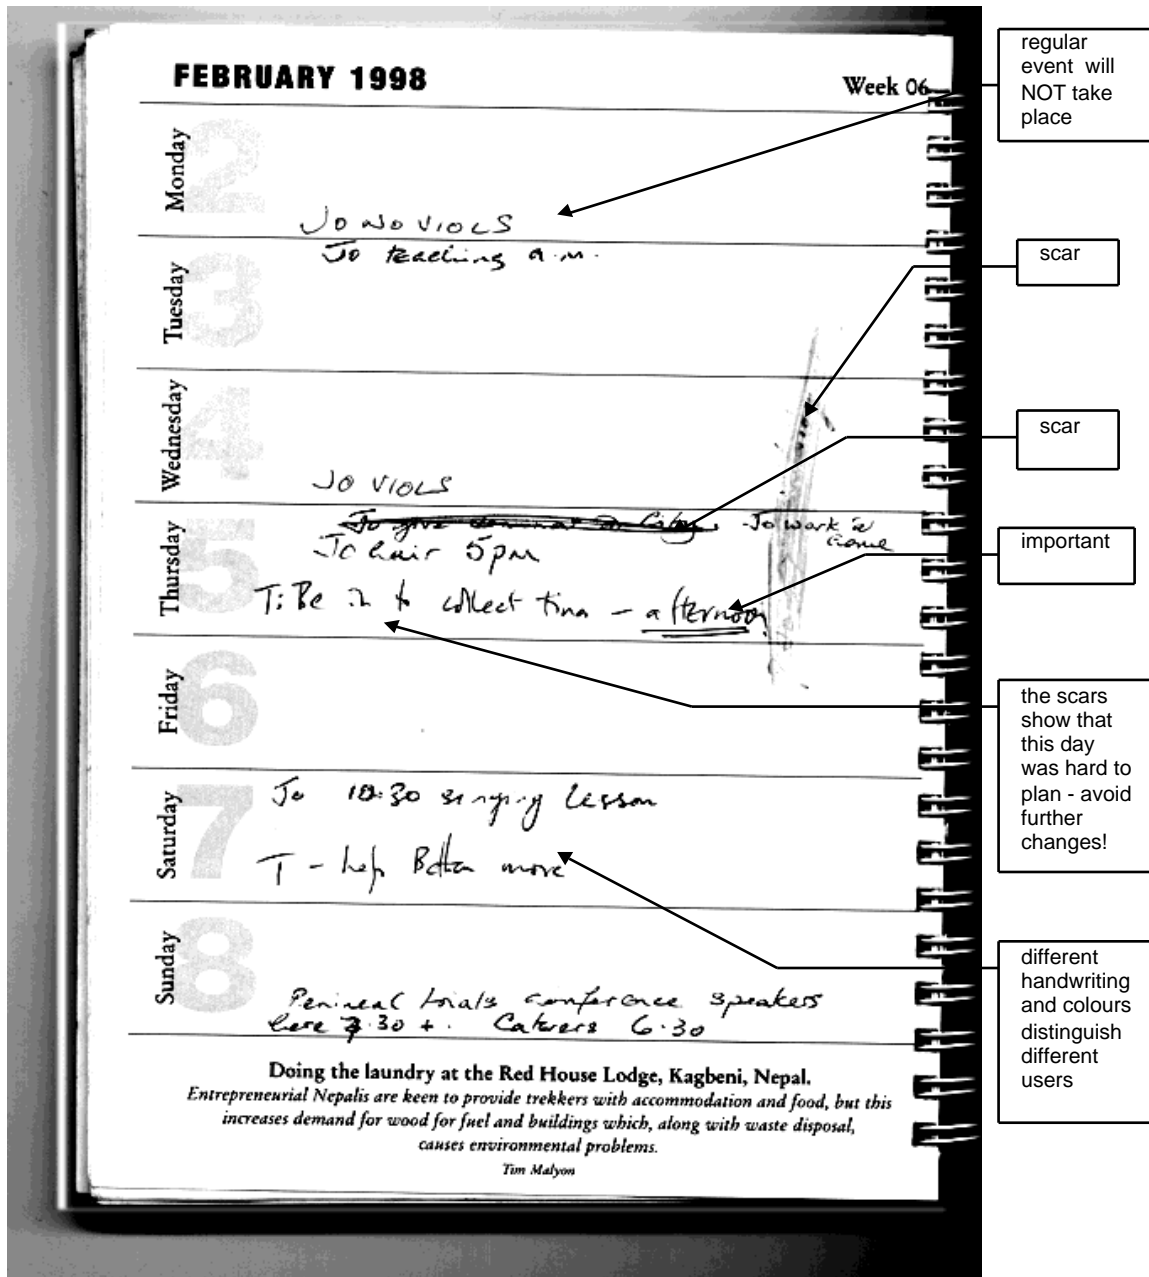 FEBRUARY 1998
Week 06
Monday
2
JO NO VIOLS
Tuesday
3
Jo teaching a.m.
Wednesday
4
JO VIOLS
Thursday
5
Jo give seminar in - Jo work @
home
Jo hair 5pm
T: Be in to collect tina - afternoon
Friday
6
Saturday
7
Jo 10:30 singing lesson
T - help move
Sunday
8
Perineal trials conference speakers
here 7.30 +. Caterers 6.30
Doing the laundry at the Red House Lodge, Kagbeni, Nepal.
Entrepreneurial Nepalis are keen to provide trekkers with accommodation and food, but this
increases demand for wood for fuel and buildings which, along with waste disposal,
causes environmental problems.
Tim Malyon
regular
event will
NOT take
place
scar
scar
important
the scars
show that
this day
was hard to
plan - avoid
further
changes!
different
handwriting
and colours
distinguish
different
users